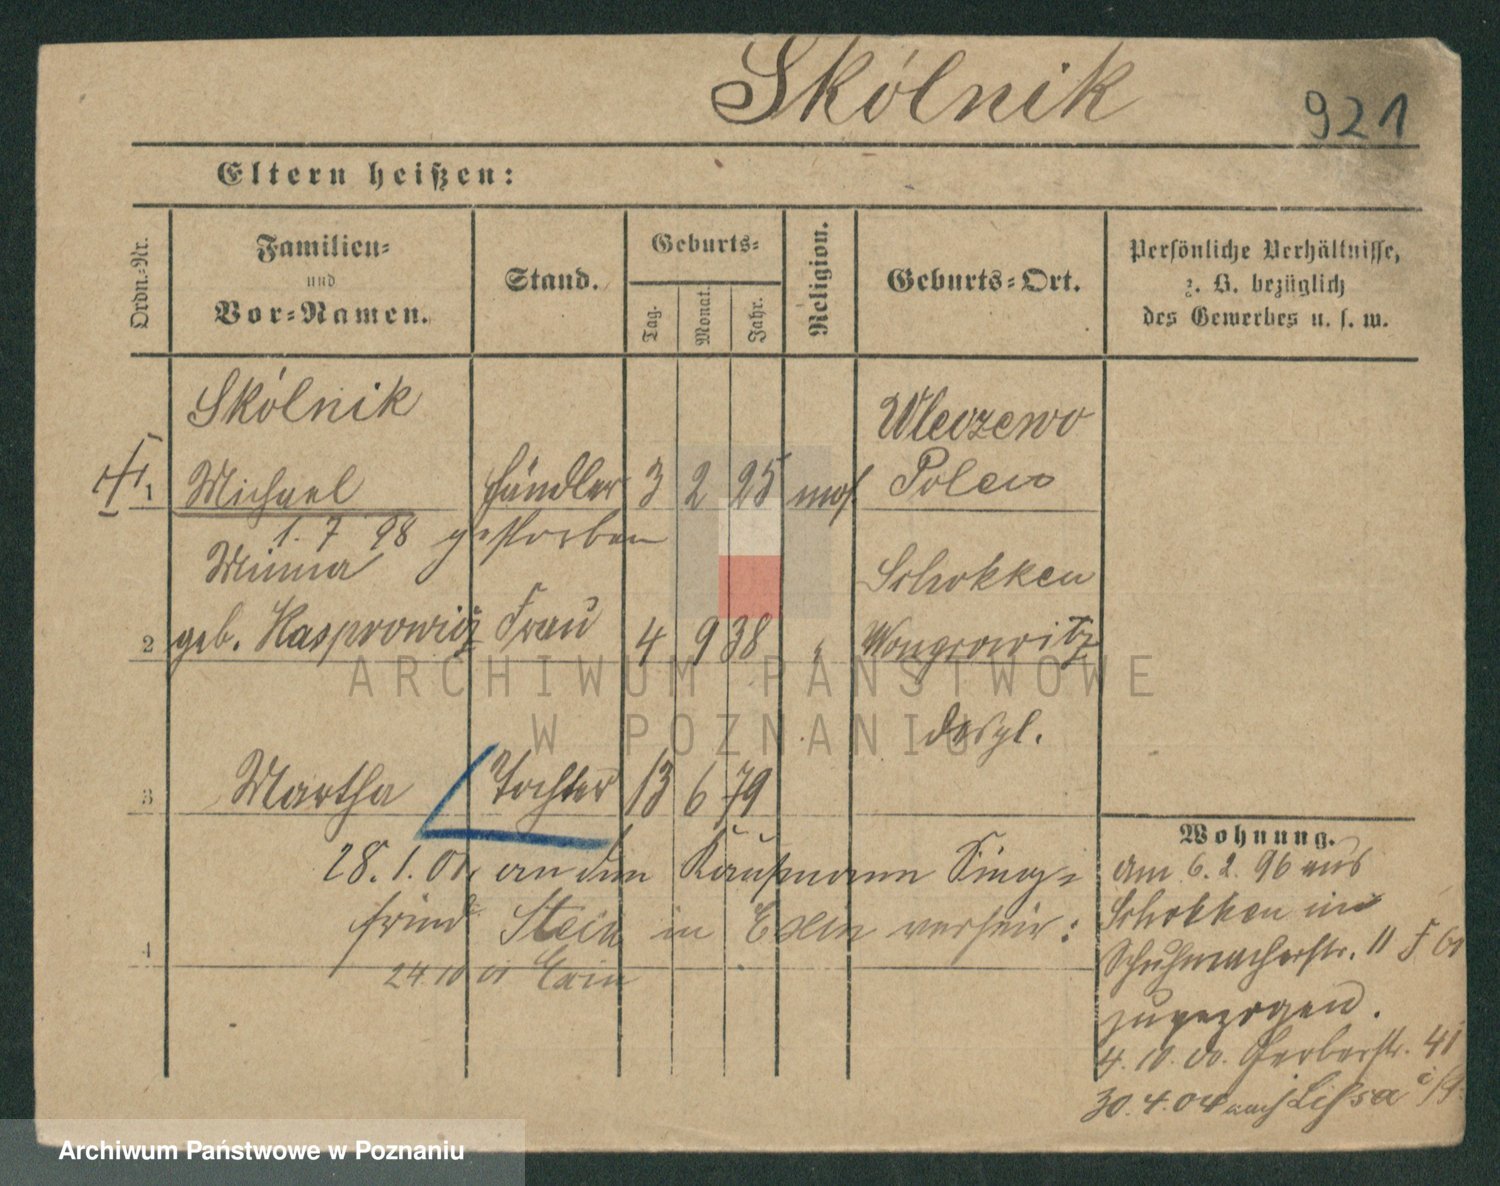 Skólnik
921
Eltern heißen:
Ordn.=Nr.
Familien=
und
Vor=Namen.
Stand.
Geburts=
Tag.
Monat.
Jahr.
Religion.
Geburts=Ort.
Persönliche Verhältnisse,
z. B. bezüglich
des Gewerbes u. s. w.
Skólnik
1 Michael Händler 3 2 25 mos.
Polen
1. 7 98 gestorben
Minna
Schokken
2 geb. Kasprowicz Frau 4 9 38 " Wongrowitz
desgl.
3 Martha Tochter 13 6 79
28. 1. 01. an den Kaufmann
Stein in Exin verheir:
4
24 10 01 Exin
Wohnung.
am 6. 2. 96 aus
Schokken
Schuhmacherstr. 11
zugezogen.
4. 10. 00. Gerberstr. 41
30. 4. 04 nach Lissa i/P.
ARCHIWUM PAŃSTWOWE
W POZNANIU
Archiwum Państwowe w Poznaniu